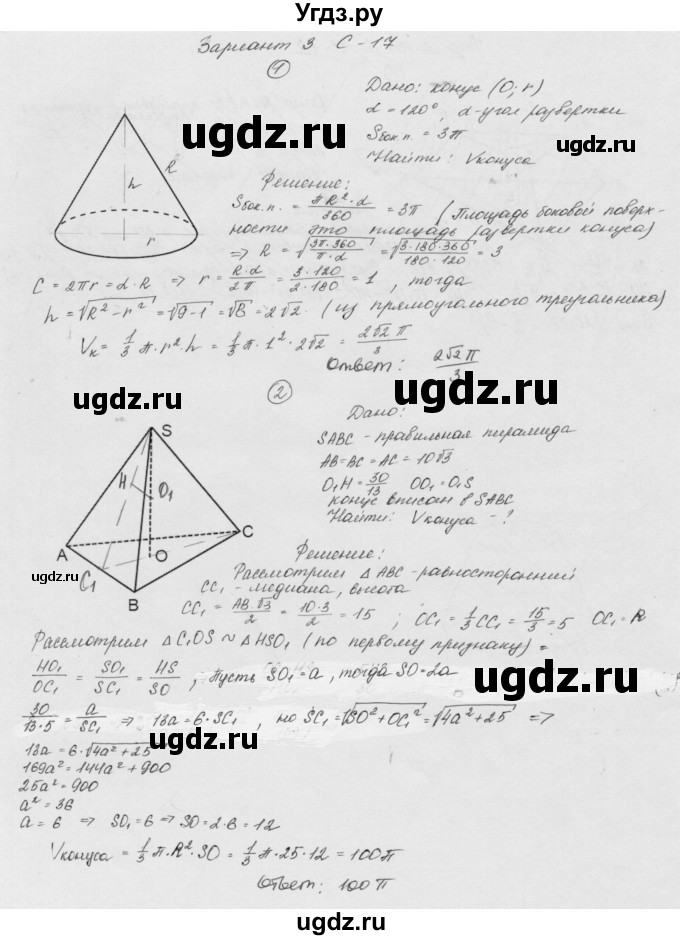 Угдз.ру
Вариант 3 С-17
1
Дано: конус (O; r)
α = 120°, α-угол развертки
Sбок.п. = 3π
Найти: Vконуса
ugdz.ru
ugdz.ru
R
h
r
Решение:
Sбок.п. = πR²·α/360 = 3π (Площадь боковой поверх-
ности это площадь развертки конуса)
ugdz.ru
ugdz.ru
⇒ R = √(3π·360/π·α) = √(3·180·360/180·120) = 3
C = 2πr = α·R ⇒ r = R·α/2π = 3·120/2·180 = 1, тогда
h = √(R²-r²) = √(9-1) = √8 = 2√2. (из прямоугольного треугольника)
Vк = 1/3 π·r²·h = 1/3 π·1²·2√2 = 2√2 π/3
Ответ: 2√2 π/3
2
ugdz.ru
ugdz.ru
Дано:
SABC - правильная пирамида
AB=BC=AC=10√3
O₁H = 30/13 OO₁=O₁S
конус вписан в SABC
Найти: Vконуса - ?
S
H
O₁
A
C
O
C₁
B
ugdz.ru
ugdz.ru
Решение:
Рассмотрим △ABC-равносторонний
CC₁ - медиана, высота
CC₁ = AB·√3/2 = 10·3/2 = 15 ; OC₁ = 1/3 CC₁ = 15/3 = 5 OC₁ = R
ugdz.ru
ugdz.ru
Рассмотрим △C₁OS ~ △HSO₁ (по первому признаку) =
HO₁/OC₁ = SO₁/SC₁ = HS/SO ; Пусть SO₁=a, тогда SO=2a
30/13·5 = a/SC₁ ⇒ 13a = 6·SC₁, но SC₁ = √(SO²+OC₁²) = √(4a²+25) ⇒
ugdz.ru
ugdz.ru
13a = 6·√(4a²+25)
169a² = 144a² + 900
25a² = 900
a² = 36
a = 6 ⇒ SO₁ = 6 ⇒ SO = 2·6 = 12
Vконуса = 1/3 π·R²·SO = 1/3 π·25·12 = 100π
ugdz.ru
ugdz.ru
Ответ: 100π
ugdz.ru